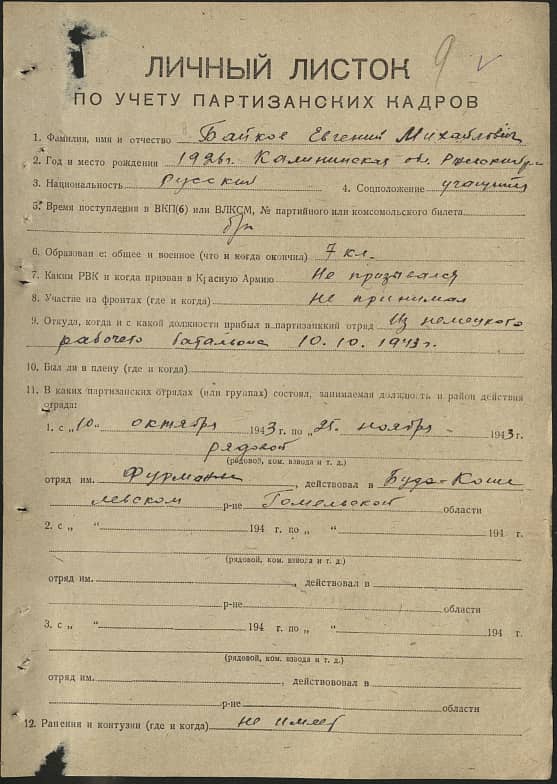 9 v
ЛИЧНЫЙ ЛИСТОК
ПО УЧЕТУ ПАРТИЗАНСКИХ КАДРОВ
1. Фамилия, имя и отчество Байков Евгений Михайлович
2. Год и место рождения 1926 г. Калининская об.
3. Национальность русский 4. Соцположение учащийся
5. Время поступления в ВКП(б) или ВЛКСМ, № партийного или комсомольского билета
б/п
6. Образован е: общее и военное (что и когда окончил) 7 кл.
7. Каким РВК и когда призван в Красную Армию Не призывался
8. Участие на фронтах (где и когда) не принимал
9. Откуда, когда и с какой должности прибыл в партизанккий отряд Из немецкого
рабочего батальона 10.10.1943 г.
10. Был ли в плену (где и когда)
11. В каких партизанских отрядах (или группах) состоял, занимаемая должность и район действия
отряда:
1. с „10“ октября 1943 г. по „25“ ноября 1943 г.
рядовой
(рядовой, ком. взвода и т. д.)
отряд им. Фурманы, действовал в Буда-Коше
левском р-не Гомельской области
2. с „ “ 194 г. по „ “ 194 г.
(рядовой, ком. взвода и т. д.)
отряд им. , действовал в
р-не области
3. с „ “ 194 г. по „ “ 194 г.
(рядовой, ком. взвода и т. д.)
отряд им. , действововал в
р-не области
12. Ранения и контузии (где и когда) не имеет